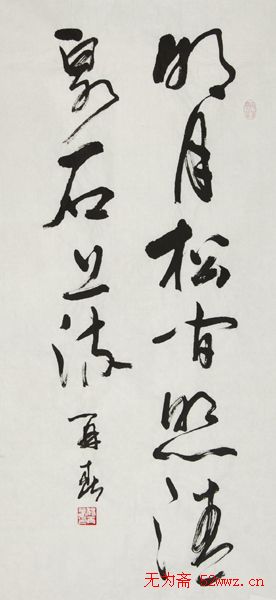 明月松间照清
泉石上流
无为斋 52wwz.cn